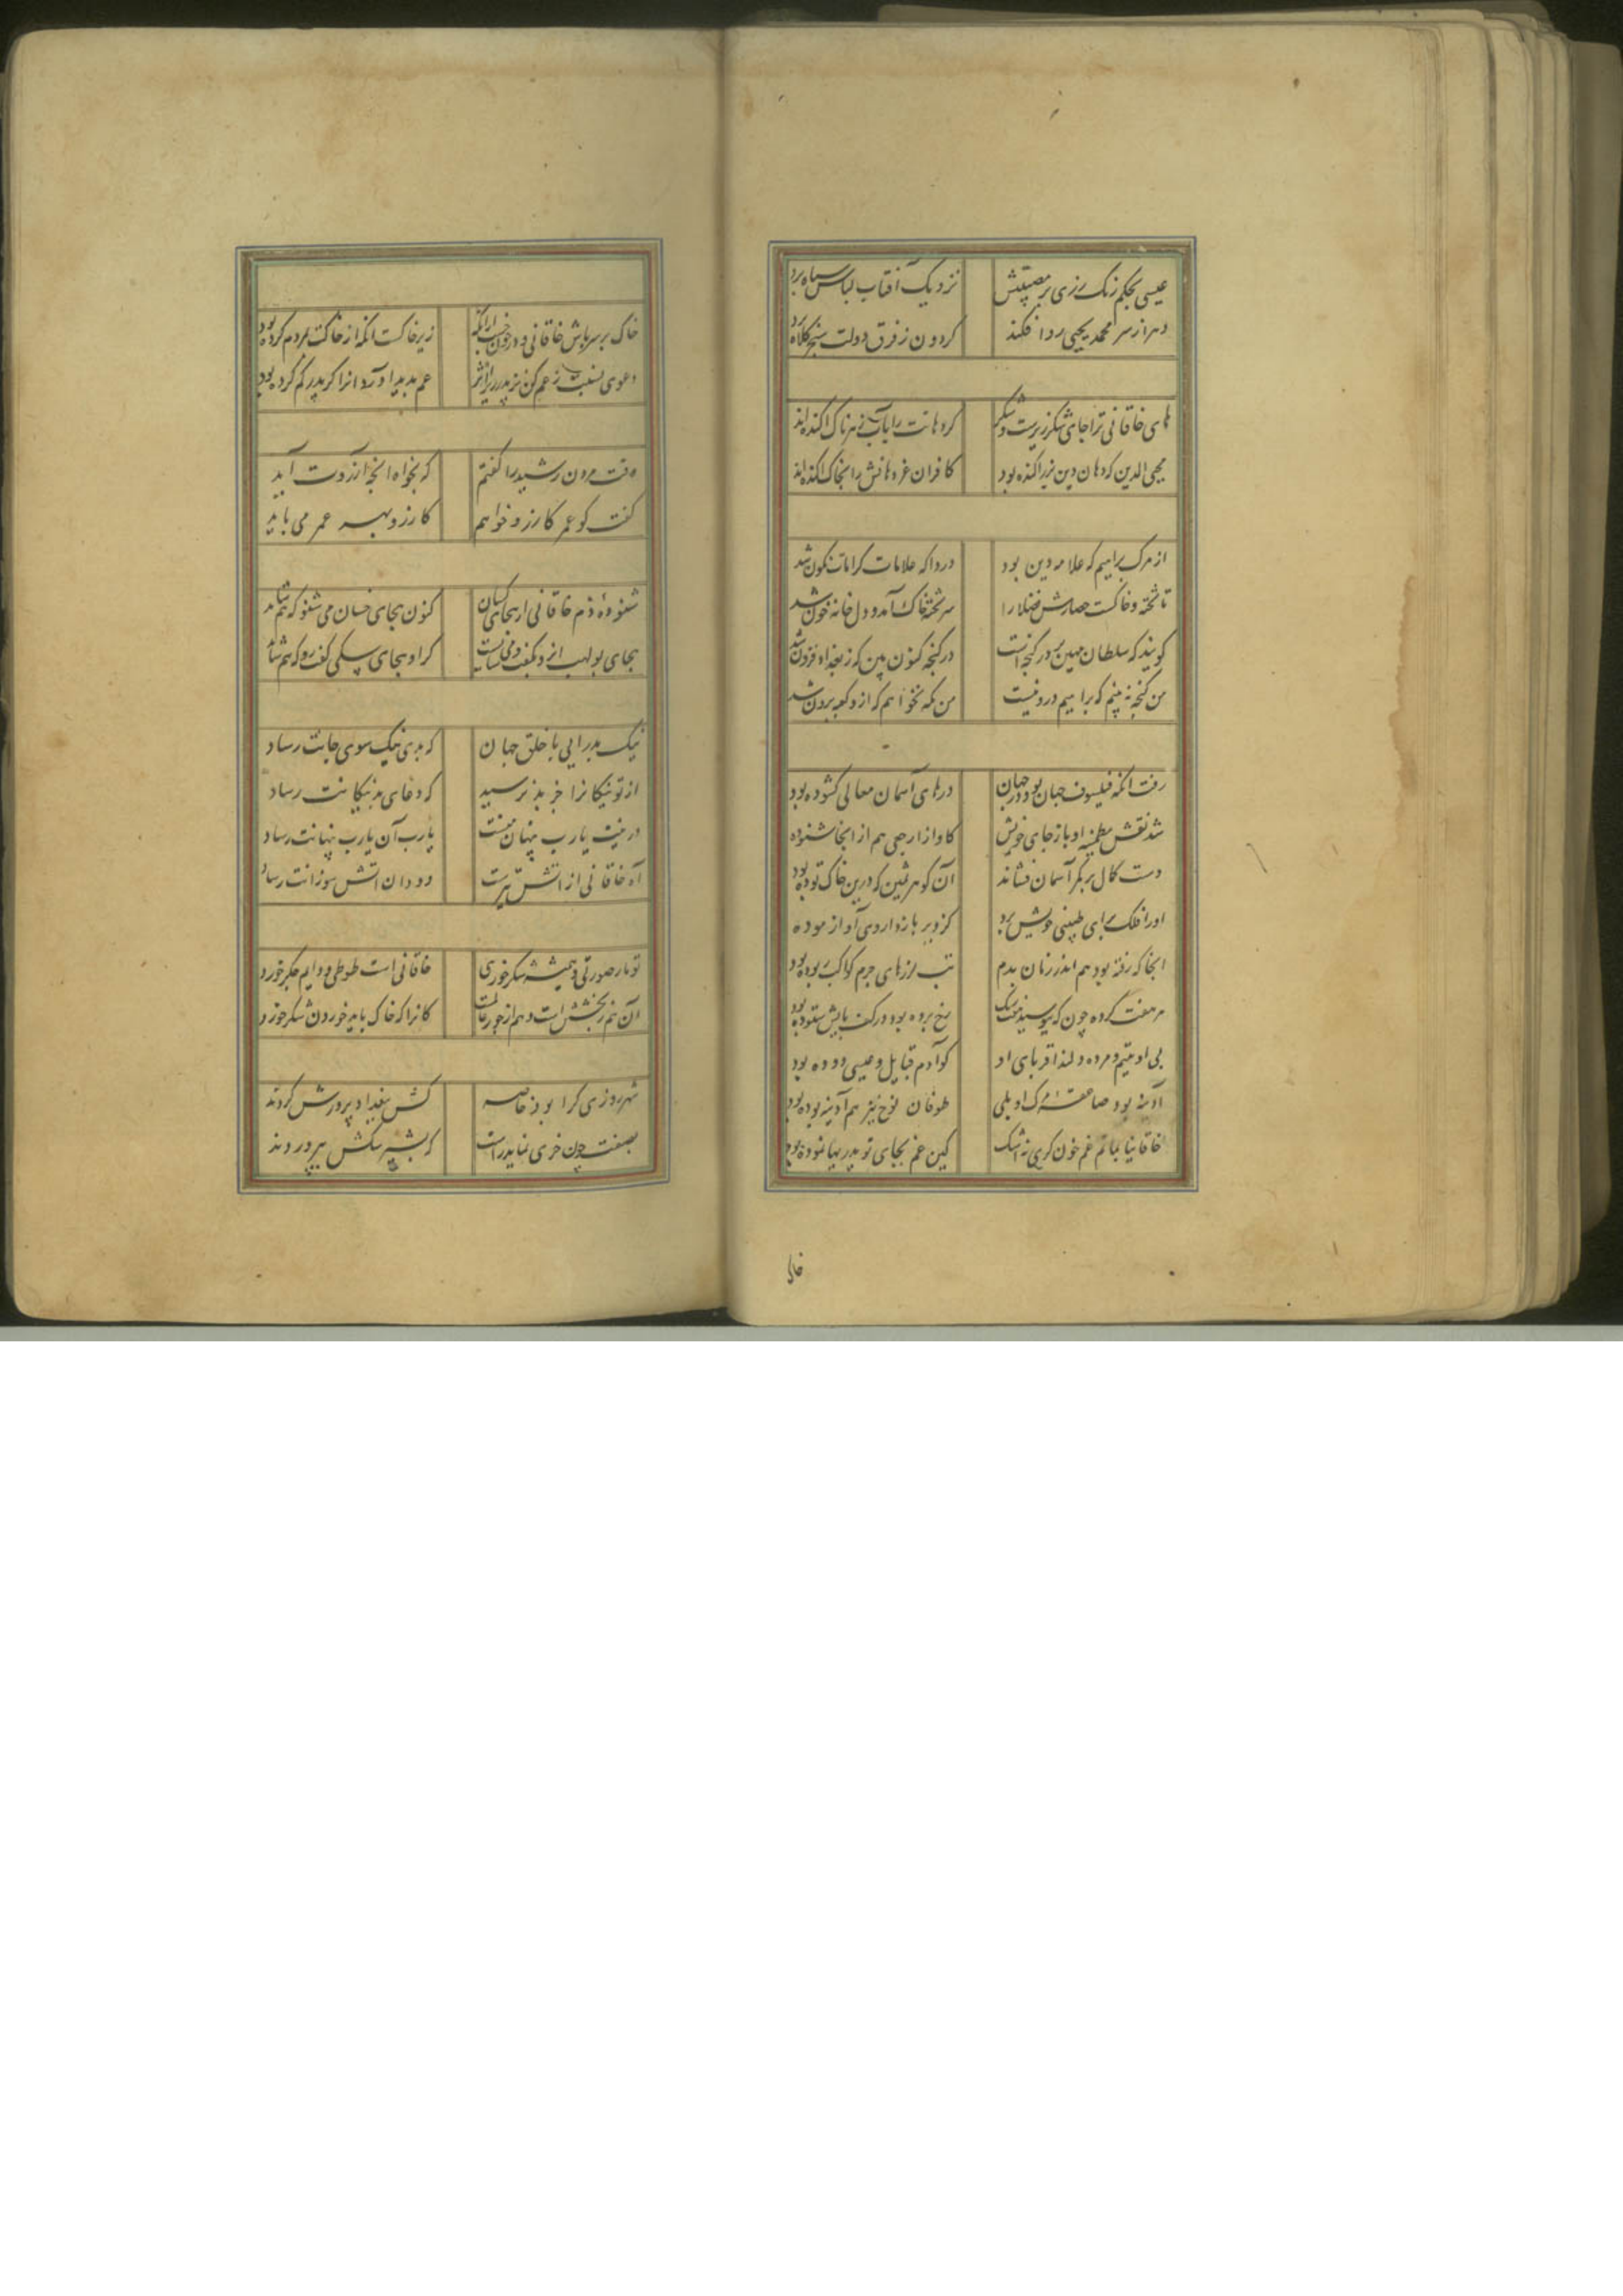 عیسی بحکم رنک رزی بر مصیبتش
نزدیک آفتاب لباس سیاه برد
دهر از سر محمد یحیی ردا فکند
کردون ز فرق دولت سنجر کلاه برد
های خاقانی ترا جای شکر ریزست و شکر
کر دهانت را بآب زهرناک اکنده اند
محیی الدین کو دهان دین بزر اکنده بود
کافران غز دهانش را بخاک اکنده اند
از مرک براهیم که علامه دین بود
دردا که علامات کرامات نکون شد
تا تخته خاکست حصارش فضلا را
سر تخته خاک آمد و دل خانه خون شد
کویند که سلطان مهین بر در کنجه است
در کنجه کنون بین که ز بغداد فزون شد
من کنجه نبینم که براهیم درو نیست
من مکه نخواهم که ازو کعبه برون شد
رفت انکه فیلسوف جهان بود و در جهان
درهای آسمان معالی کشوده بود
شد نفس مطمئنه او باز جای خویش
کاواز ارجعی هم از انجا شنوده
دست کمال بر کمر آسمان نشاند
آن کوهر ثمین که درین خاک توده بود
اورا فلک برای طبیبی خویش برد
کز دیر باز داروی او آزموده
انجا که رفته بود هم اندر زمان بدم
تب لرزهای جرم کواکب ربوده بود
بی او یتیم و مرده دلند اقربای او
کو آدم قبایل و عیسی دوده بود
آدینه بود صاعقه مرک او بلی
طوفان نوح نیز هم آدینه بوده بود
خاقانیا بماتم عم خون کری نه اشک
کین عم بجای تو پدریها نموده بود
خاک
خاک بر سر پاش خاقانی و در خون خسب ازانکه
زیر خاکست انکه از خاکت مردم کرده بود
دعوی نسبت ز عم کن نز پدر زیرا اثر
عم پدید آورد انرا کر پدر کم کرده بود
وقت مردن رشید را کفتم
که بخواه انچه آرزوت آید
کفت کو عمر کارزو خواهم
کارزو بهر عمر می باید
شنودۀ ذم خاقانی از بجای کسان
کنون بجای خسان می شنو که هم شاید
نیک بد رایی با خلق جهان
که بدی نیک سوی جانت رساد
از تو نیکانرا جز بد نرسید
که دعای بد نیکانت رساد
در پیت یارب پنهان منست
یارب آن یارب پنهانت رساد
آه خاقانی از آتش تیزست
دود آن آتش سوزانت رساد
تو مار صورتی و همیشه شکر خوری
خاقانی است طوطی و دایم جکر خورد
آن هم ز بخششست و هم از جور عالمست
کانرا که خاک باید خوردن شکر خورد
شهرزوری کرا بود خاصه
کش ببغداد پرورش کردند
بصفت چون خری نماید راست
که بشیر سکش بپروردند